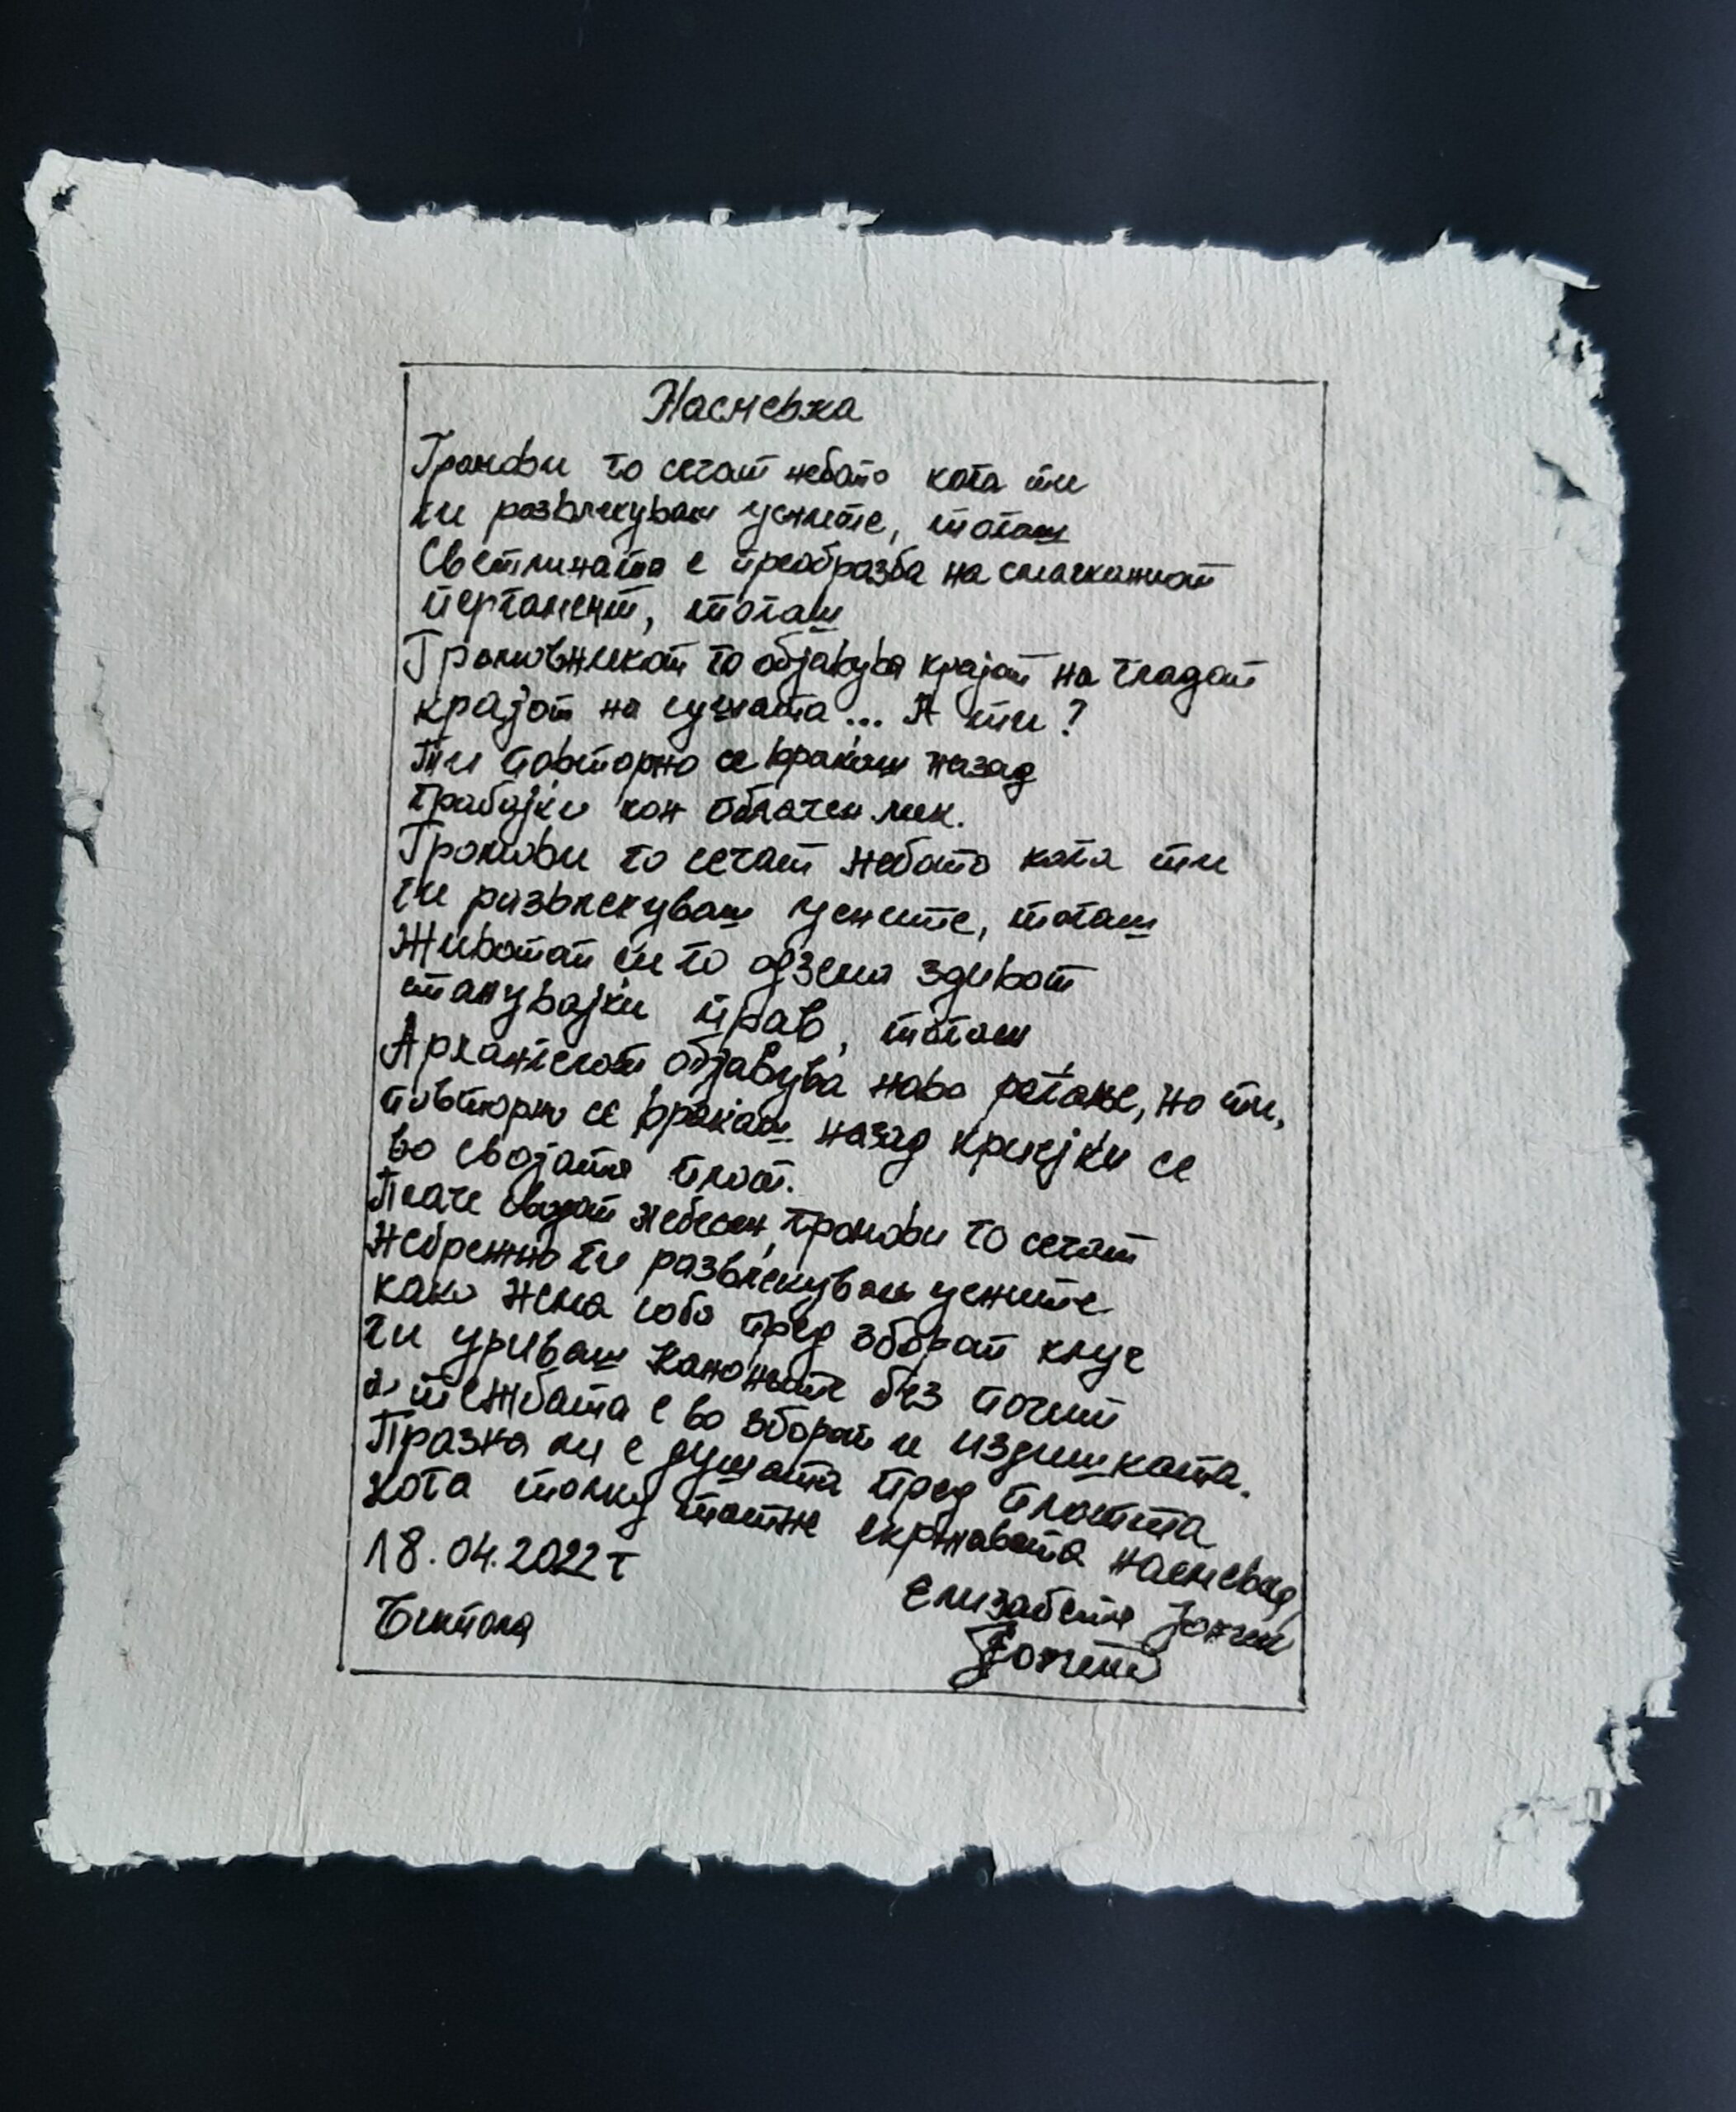 Насмевка
Громови го сечат небото кога ти
ги развлекуваш усните, тогаш
Светлината е преобразба на смачканиот
пергамент, тогаш
Громовникот го објавува крајот на гладот
крајот на сушата... А ти?
Ти повторно се враќаш назад
грабајќи кон облачен лик.
Громови го сечат небото кога ти
ги развлекуваш усните, тогаш
Животот ти го одзема здивот
станувајќи прав, тогаш
Архангелот објавува ново раѓање, но ти,
повторно се враќаш назад криејќи се
во својата плот.
Плаче сводот небесен, громови го сечат
Небрежно ги развлекуваш усните
како нема соба пред зборот клуч
ги уриваш каноните без почит
а тежбата е во зборот и издишката.
Празна ли е душата пред плотта
кога толку тотне скржавата насмевка
18.04.2022 г
Елизабета Јончиќ
Битола